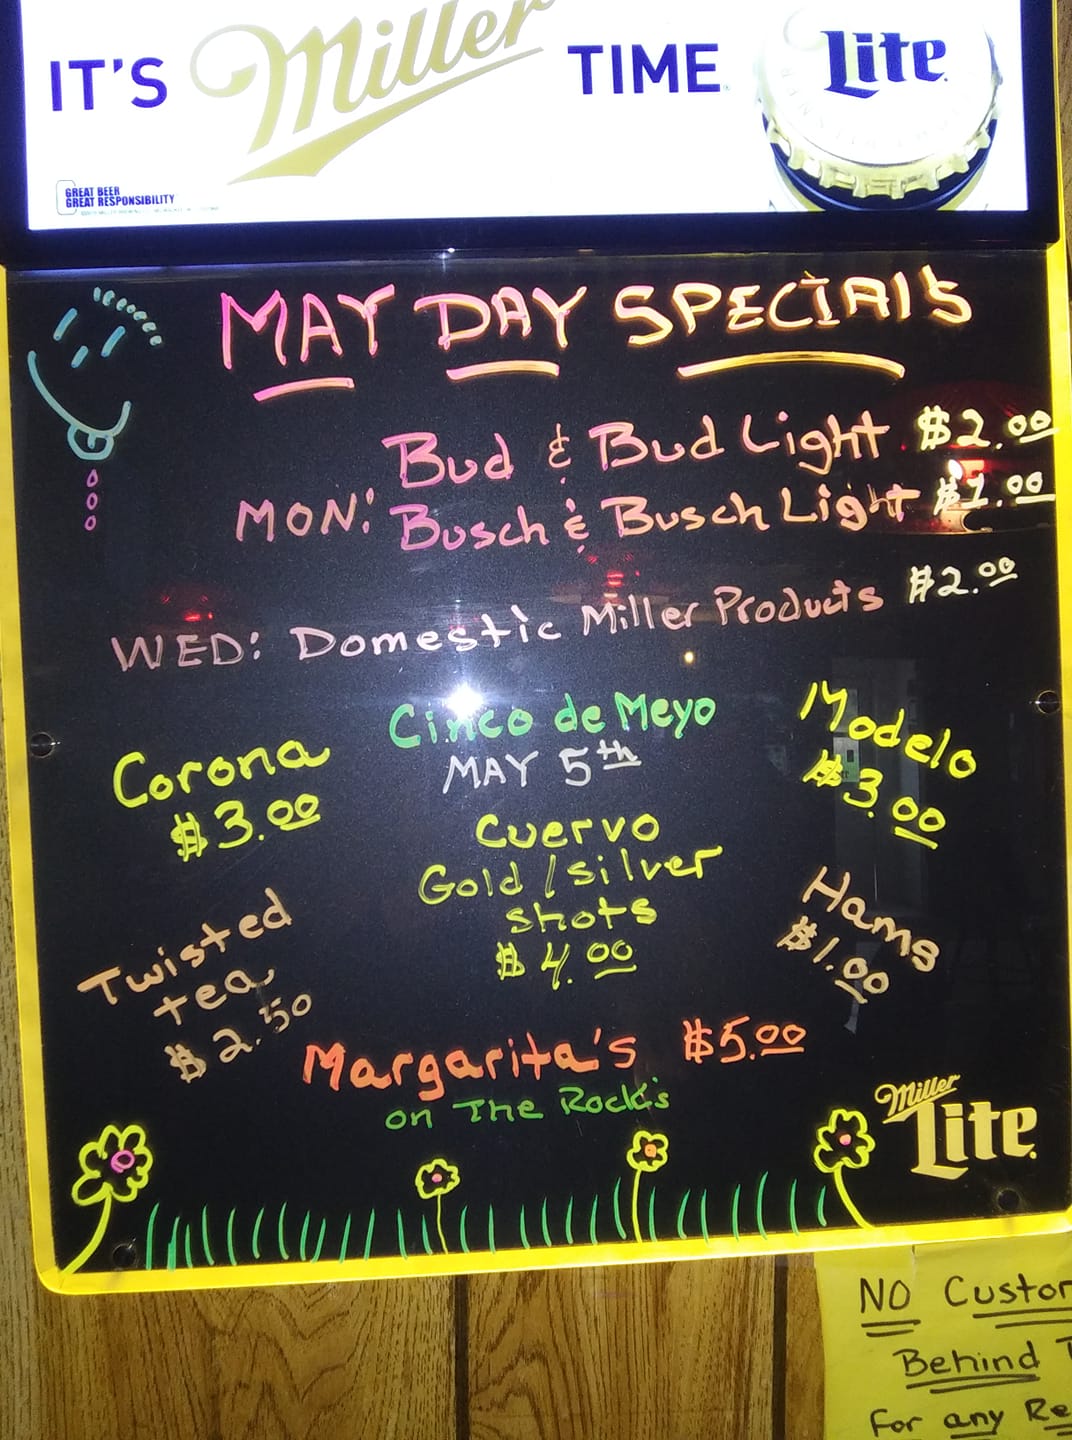 IT'S Miller TIME Lite
GREAT BEER
GREAT RESPONSIBILITY
MAY DAY SPECIAlS
Bud & Bud Light $2.00
MON: Busch & Busch Light $1.00
WED: Domestic Miller Products $2.00
Cinco de Meyo
MAY 5th
Corona
$3.00
Modelo
$3.00
Cuervo
Gold / Silver
shots
$4.00
Twisted
tea
$2.50
Hams
$1.00
Margarita's $5.00
on The Rock's
Miller
Lite
NO
Behind
For any